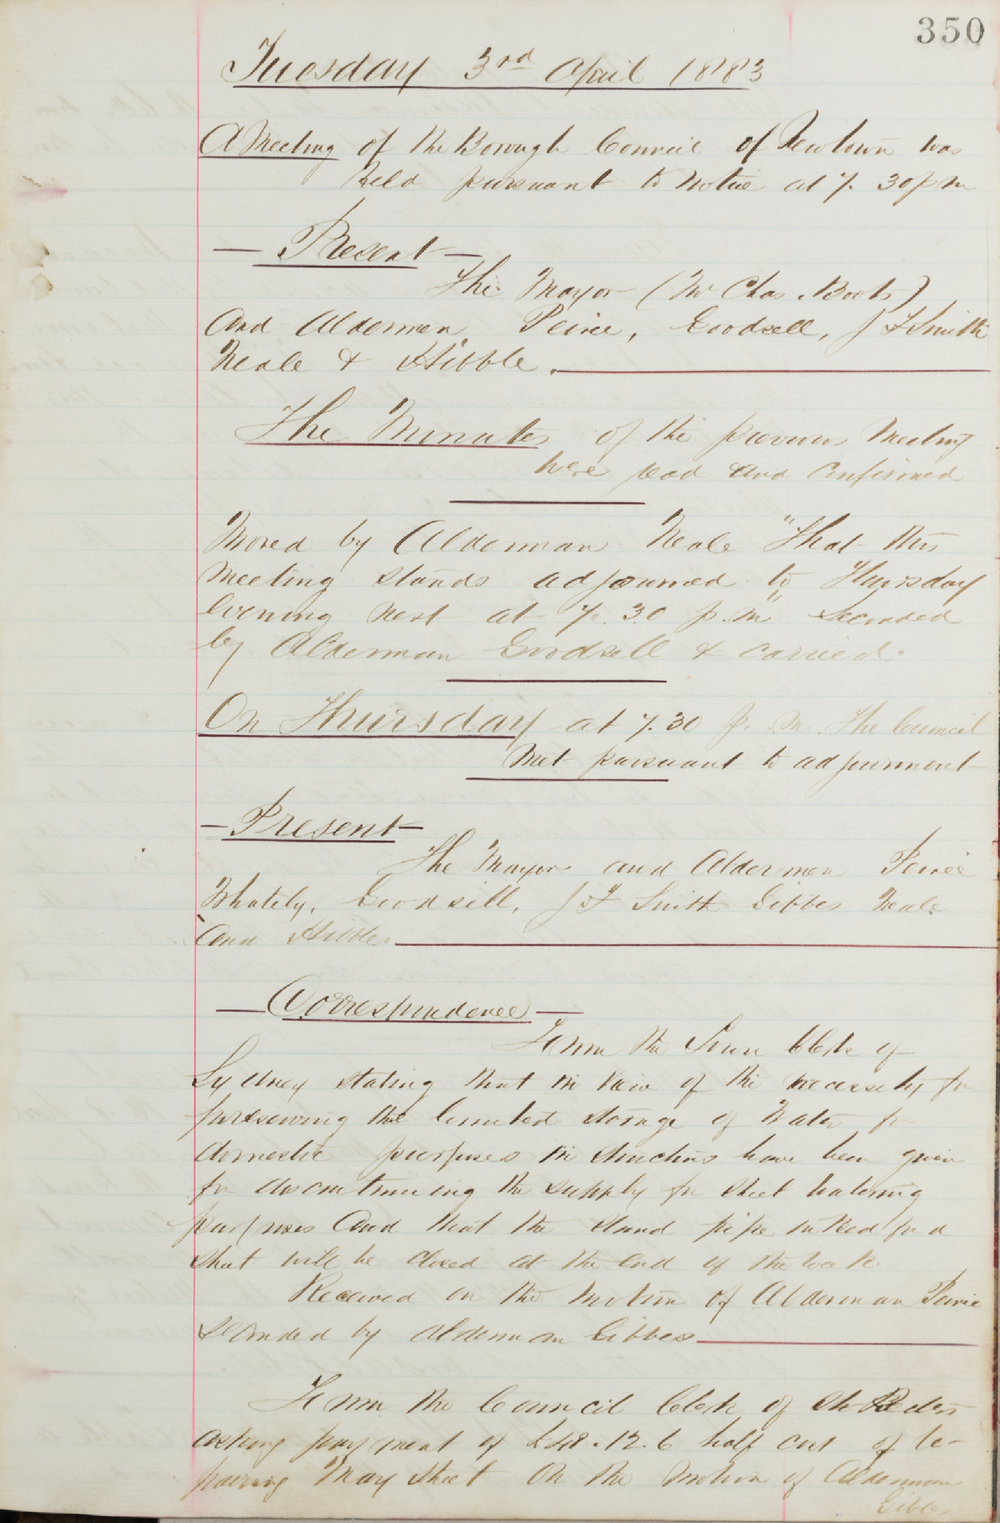 350
Tuesday 3rd April 1883
A Meeting of the Borough Council of Newtown was
held pursuant to notice at 7.30 p m
— Present —
The Mayor (Mr Chas. Boots)
And Aldermen Peirie, Goodsell, J F Smith
Neale & Hibble.
The Minutes of the previous Meeting
were read and Confirmed
Moved by Alderman Neale "That this
Meeting stands adjourned to Thursday
Evening next at 7.30 p.m" Seconded
by Alderman Goodsell & carried.
On Thursday at 7.30 p.m. The Council
Met pursuant to adjournment
— Present —
The Mayor and Aldermen Peirie
Whately, Goodsill, J F Smith Gibbes Neale
And Hibble.
— Correspondence —
From the Town Clerk of
Sydney stating that in view of the necessity for
the limited storage of Water for
domestic purposes in structions have been given
for discontinueing the supply for street watering
purposes And that the stand pipe in
street will be closed at the end of the week.
Received on the motion of Alderman Peirie
Seconded by Alderman Gibbes
From the Council Clerk of St Peters
asking payment of £48.12.6 half cost of re-
pairing May Street On the motion of Alderman
Gibbes